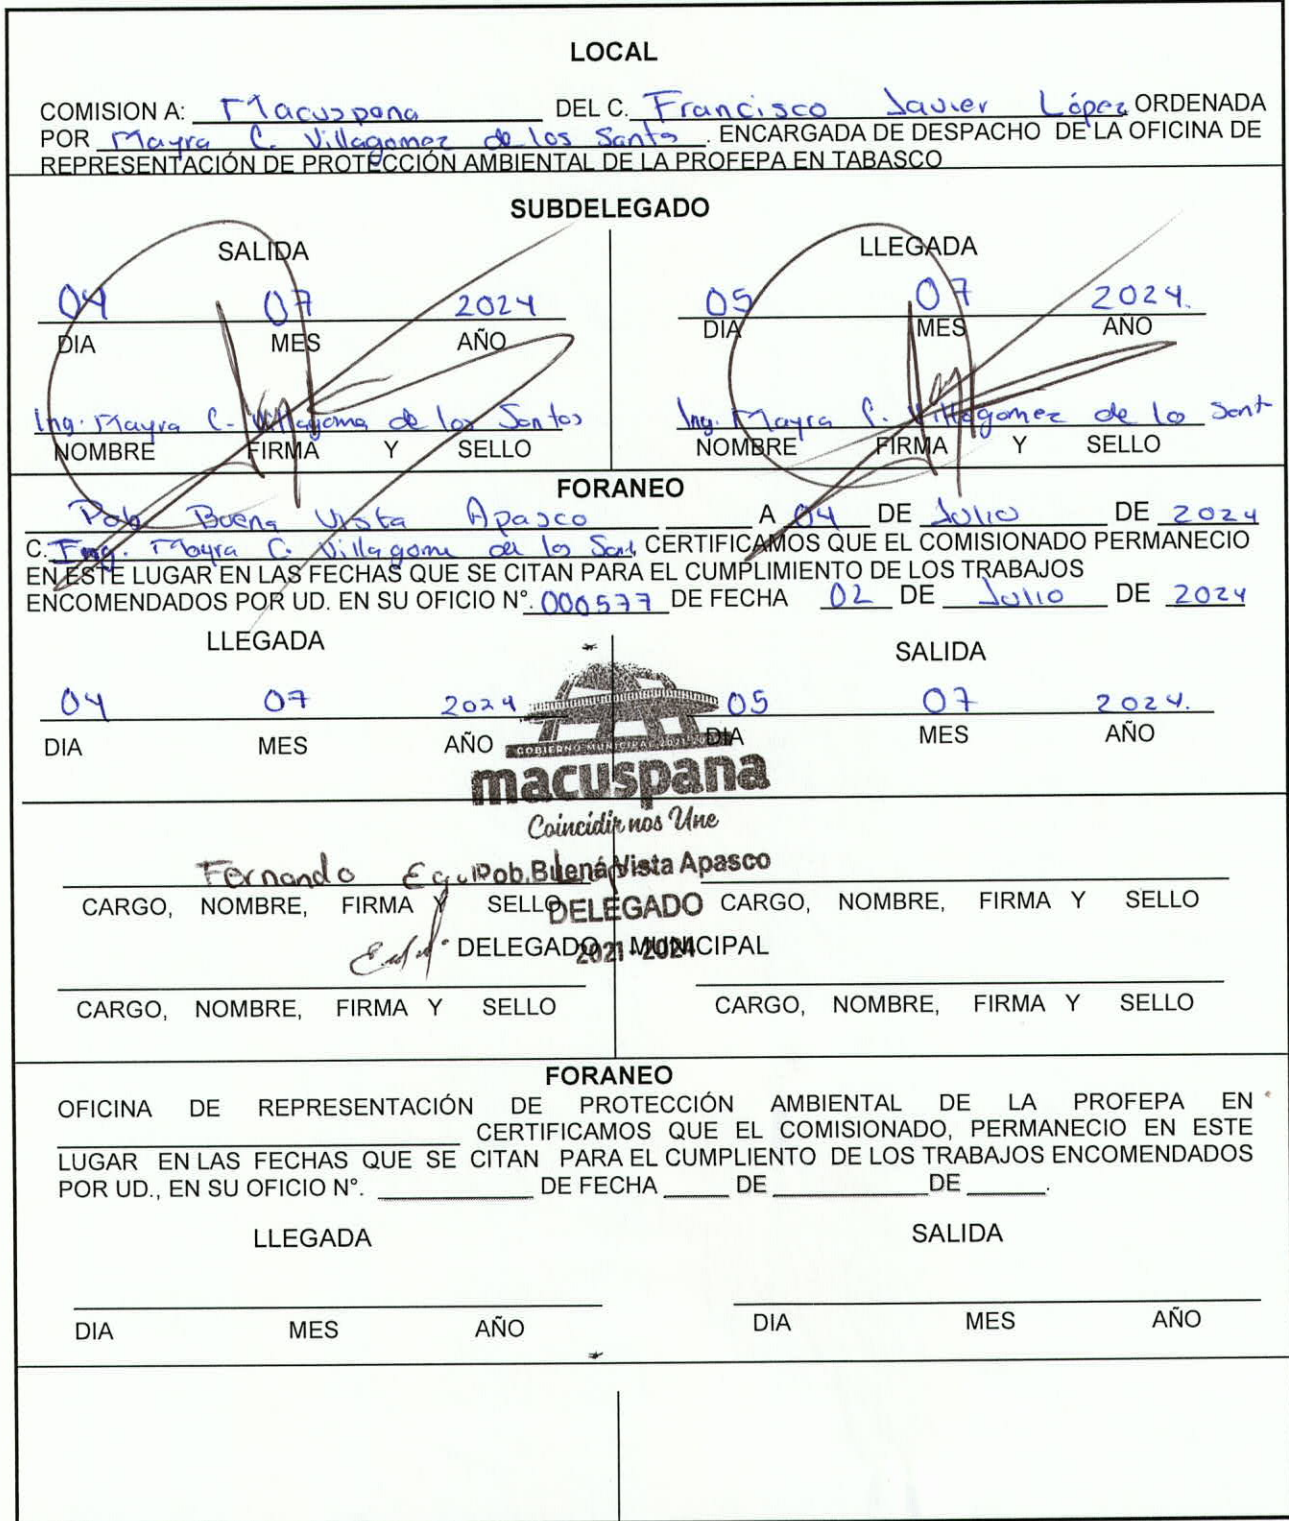 LOCAL
COMISION A: Macuspana DEL C. Francisco Javier López ORDENADA
POR Mayra C. Villagomez de los Santos. ENCARGADA DE DESPACHO DE LA OFICINA DE
REPRESENTACIÓN DE PROTECCIÓN AMBIENTAL DE LA PROFEPA EN TABASCO
SUBDELEGADO
SALIDA LLEGADA
04 07 2024 05 07 2024.
DIA MES AÑO DIA MES AÑO
Ing. Mayra C. Villagome de los Santos Ing. Mayra C. Villagomez de lo Sant
NOMBRE FIRMA Y SELLO NOMBRE FIRMA Y SELLO
FORANEO
Pob. Buena Vista Apasco A 04 DE Julio DE 2024
C. Ing. Mayra C. Villagome de los Sant CERTIFICAMOS QUE EL COMISIONADO PERMANECIO
EN ESTE LUGAR EN LAS FECHAS QUE SE CITAN PARA EL CUMPLIMIENTO DE LOS TRABAJOS
ENCOMENDADOS POR UD. EN SU OFICIO N°. 000577 DE FECHA 02 DE Julio DE 2024
LLEGADA SALIDA
04 07 2024 05 07 2024.
DIA MES AÑO DIA MES AÑO
GOBIERNO MUNICIPAL
macuspana
Coincidir nos Une
Fernando Pob. Buena Vista Apasco
CARGO, NOMBRE, FIRMA Y SELLO DELEGADO CARGO, NOMBRE, FIRMA Y SELLO
DELEGADO MUNICIPAL
2021-2024
CARGO, NOMBRE, FIRMA Y SELLO CARGO, NOMBRE, FIRMA Y SELLO
FORANEO
OFICINA DE REPRESENTACIÓN DE PROTECCIÓN AMBIENTAL DE LA PROFEPA EN
CERTIFICAMOS QUE EL COMISIONADO, PERMANECIO EN ESTE
LUGAR EN LAS FECHAS QUE SE CITAN PARA EL CUMPLIENTO DE LOS TRABAJOS ENCOMENDADOS
POR UD., EN SU OFICIO N°. DE FECHA DE DE .
LLEGADA SALIDA
DIA MES AÑO DIA MES AÑO